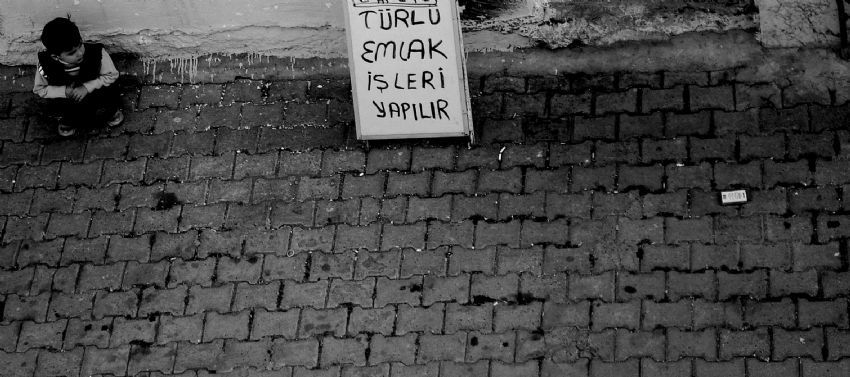 TÜRLÜ
EMLAK
İŞLERİ
YAPILIR